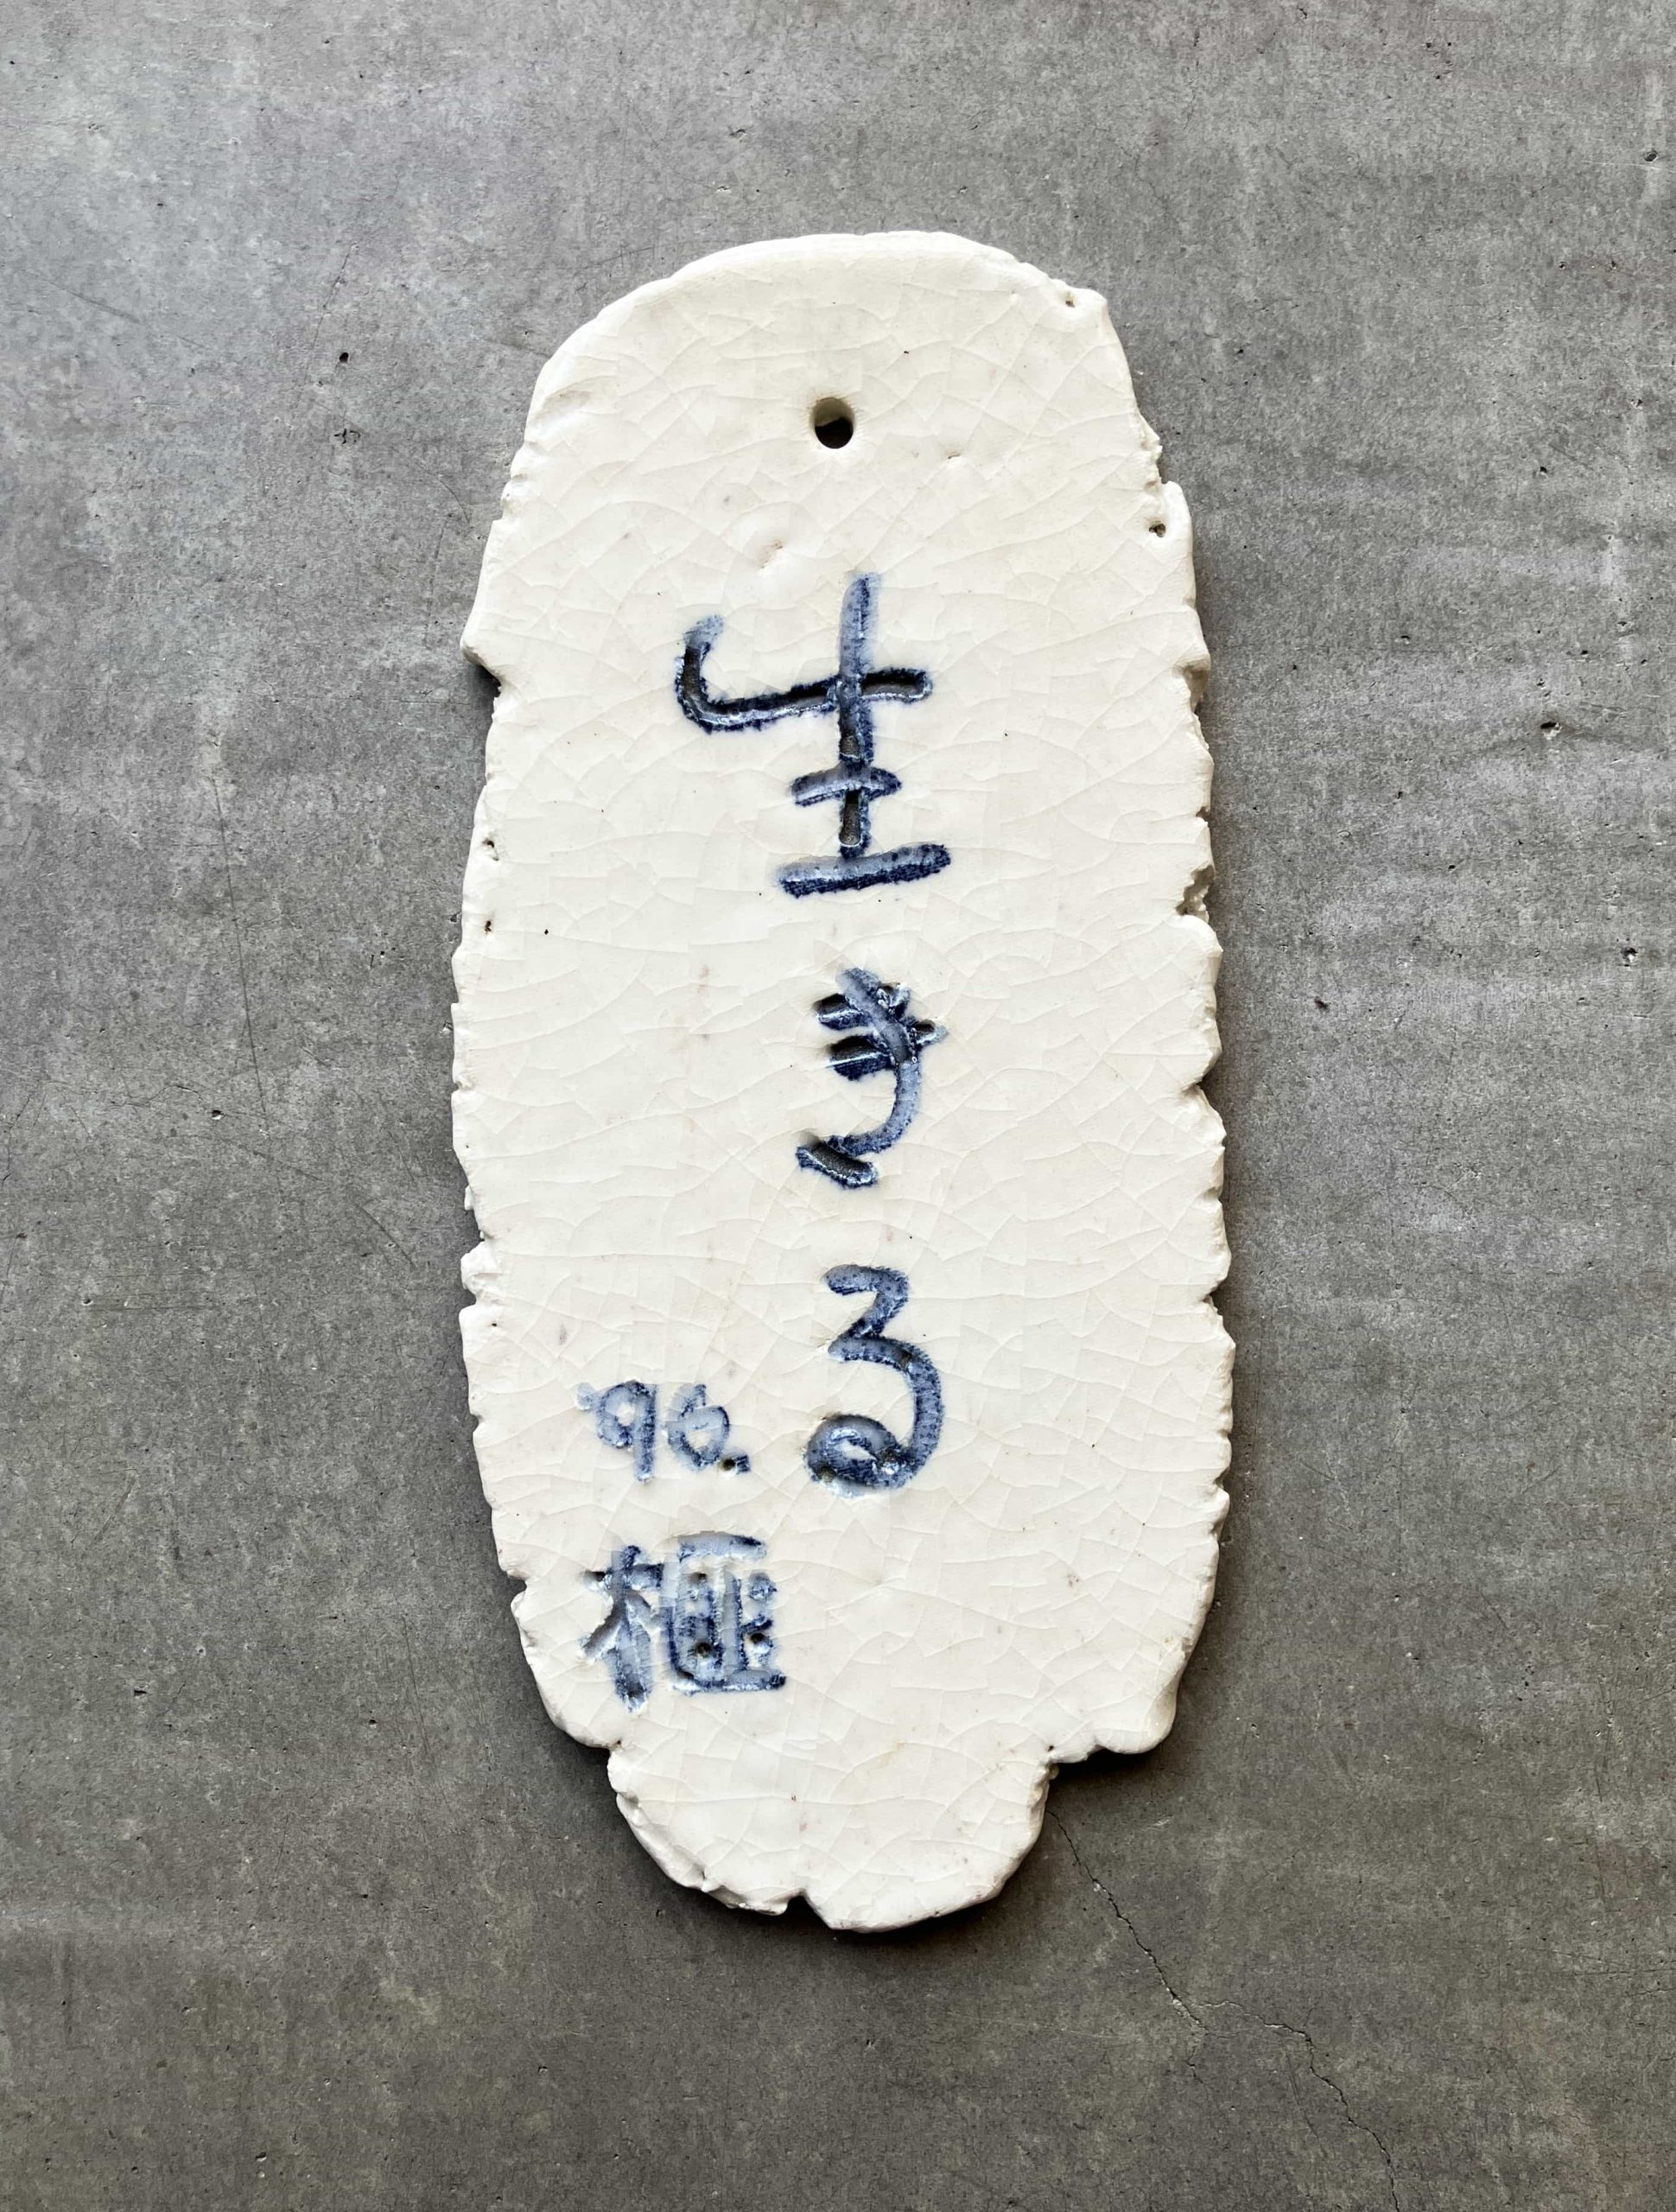 生きる
'96.
榧